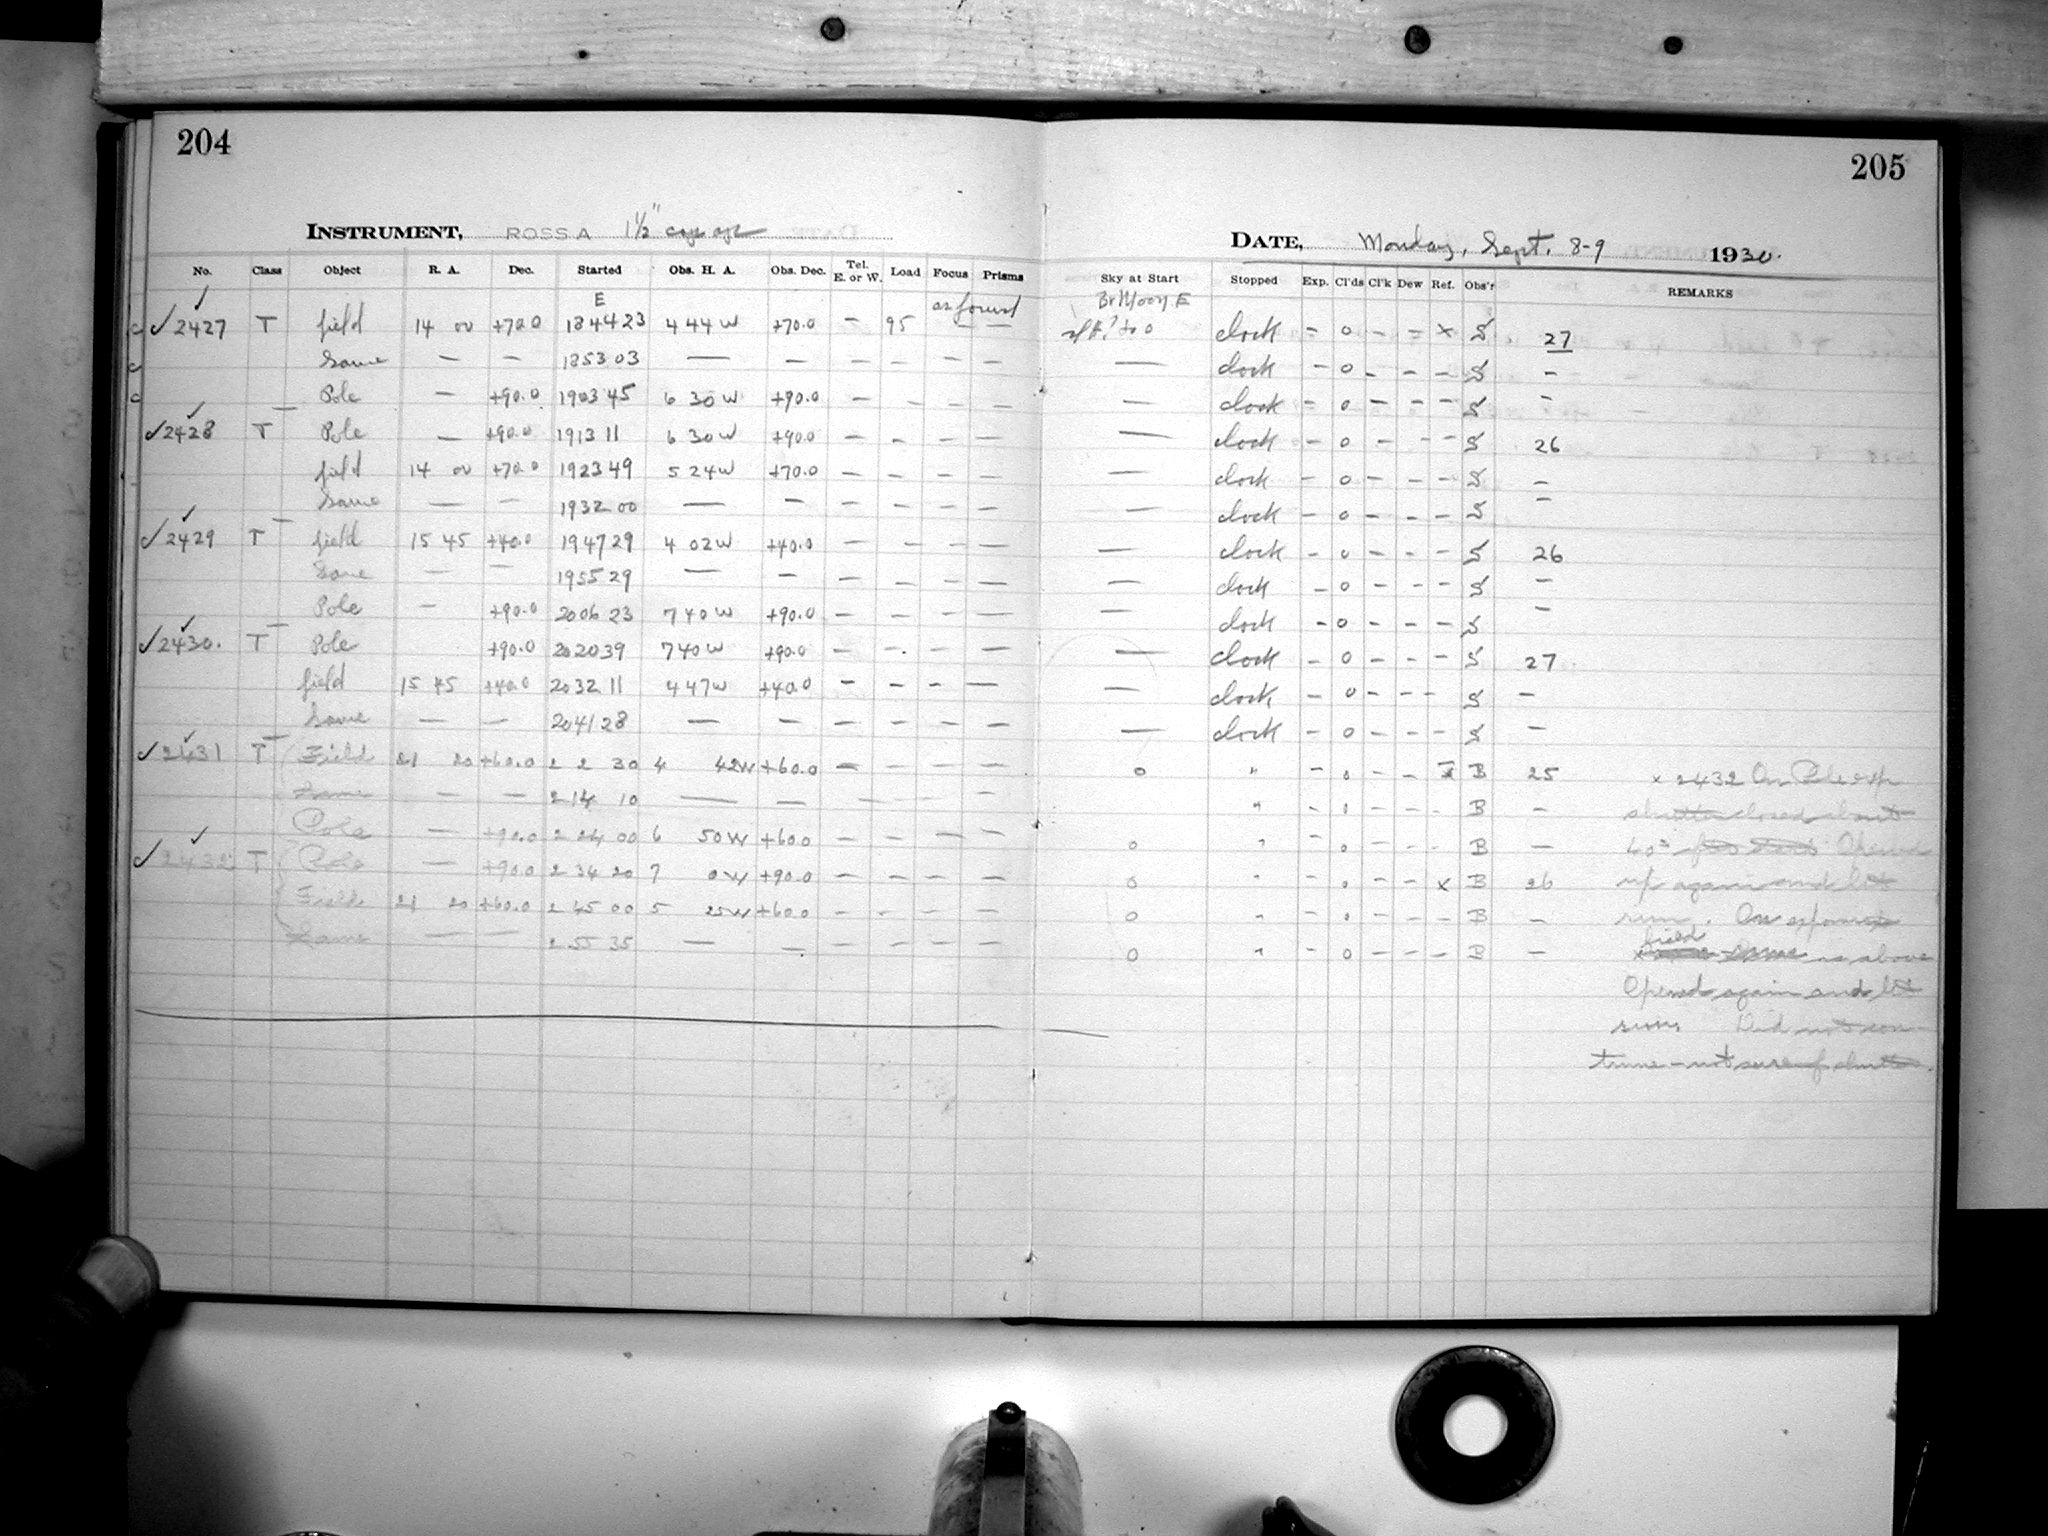 204
205
INSTRUMENT, ROSS A 1½"
DATE, Monday, Sept. 8-9 1930.
No. Class Object R. A. Dec. Started Obs. H. A. Obs. Dec. Tel. E. or W. Load Focus Prisms Sky at Start Stopped Exp. Cl'ds Cl'k Dew Ref. Obs'r REMARKS
E as found Br Moon E
✓ 2427 T field 14 00 +70.0 18 44 23 4 44 W +70.0 — 95 — — to 0 clock – 0 – = x S 27
Same — — 18 53 03 — — — — — — — clock – 0 – – – S –
Pole — +90.0 19 03 45 6 30 W +90.0 — — — — — clock – 0 – – – S –
✓ 2428 T Pole — +90.0 19 13 11 6 30 W +90.0 — — — — — clock – 0 – – – S 26
field 14 00 +70.0 19 23 49 5 24 W +70.0 — — — — — clock – 0 – – – S –
Same — — 19 32 00 — — — — — — — clock – 0 – – – S –
✓ 2429 T field 15 45 +40.0 19 47 29 4 02 W +40.0 — — — — — clock – 0 – – – S 26
Same — — 19 55 29 — — — — — — — clock – 0 – – – S –
Pole — +90.0 20 06 23 7 40 W +90.0 — — — — — clock – 0 – – – S –
✓ 2430. T Pole +90.0 20 20 39 7 40 W +90.0 — — — — — clock – 0 – – – S 27
field 15 45 +40.0 20 32 11 4 47 W +40.0 — — — — — clock – 0 – – – S –
Same — — 20 41 28 — — — — — — — clock – 0 – – – S –
✓ 2431 T Field 21 20 +60.0 2 2 30 4 42 W +60.0 — — — — 0 " – 0 – – x B 25 x 2432 On Pole exp
Same — — 2 14 10 — — — — — " – 0 – – – B – shutter closed about
Pole — +90.0 2 24 00 6 50 W +60.0 — — — — 0 " – 0 – – – B – 60s after start Opened
✓ 2432 T Pole — +90.0 2 34 20 7 0 W +90.0 — — — — 0 " – 0 – – x B 26 up again and let
Field 21 20 +60.0 2 45 00 5 25 W +60.0 — — — — 0 " – 0 – – – B – run. On exposure
Same — — 2 55 35 — — — — — — 0 " – 0 – – – B – field same as above
Opened again and let
run. Did not con-
tinue – not sure of shutter.